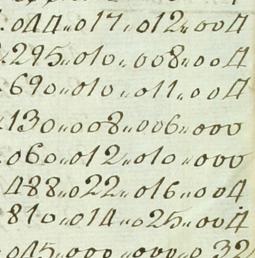 .044,,017,,012,,004
.295,,010,,008,,004
.690,,010,,011,,004
.130,,008,,006,,000
.060,,012,,010,,000
488,,022,,016,,004
810,,014,,025,,004
.045,,000,,000,,032